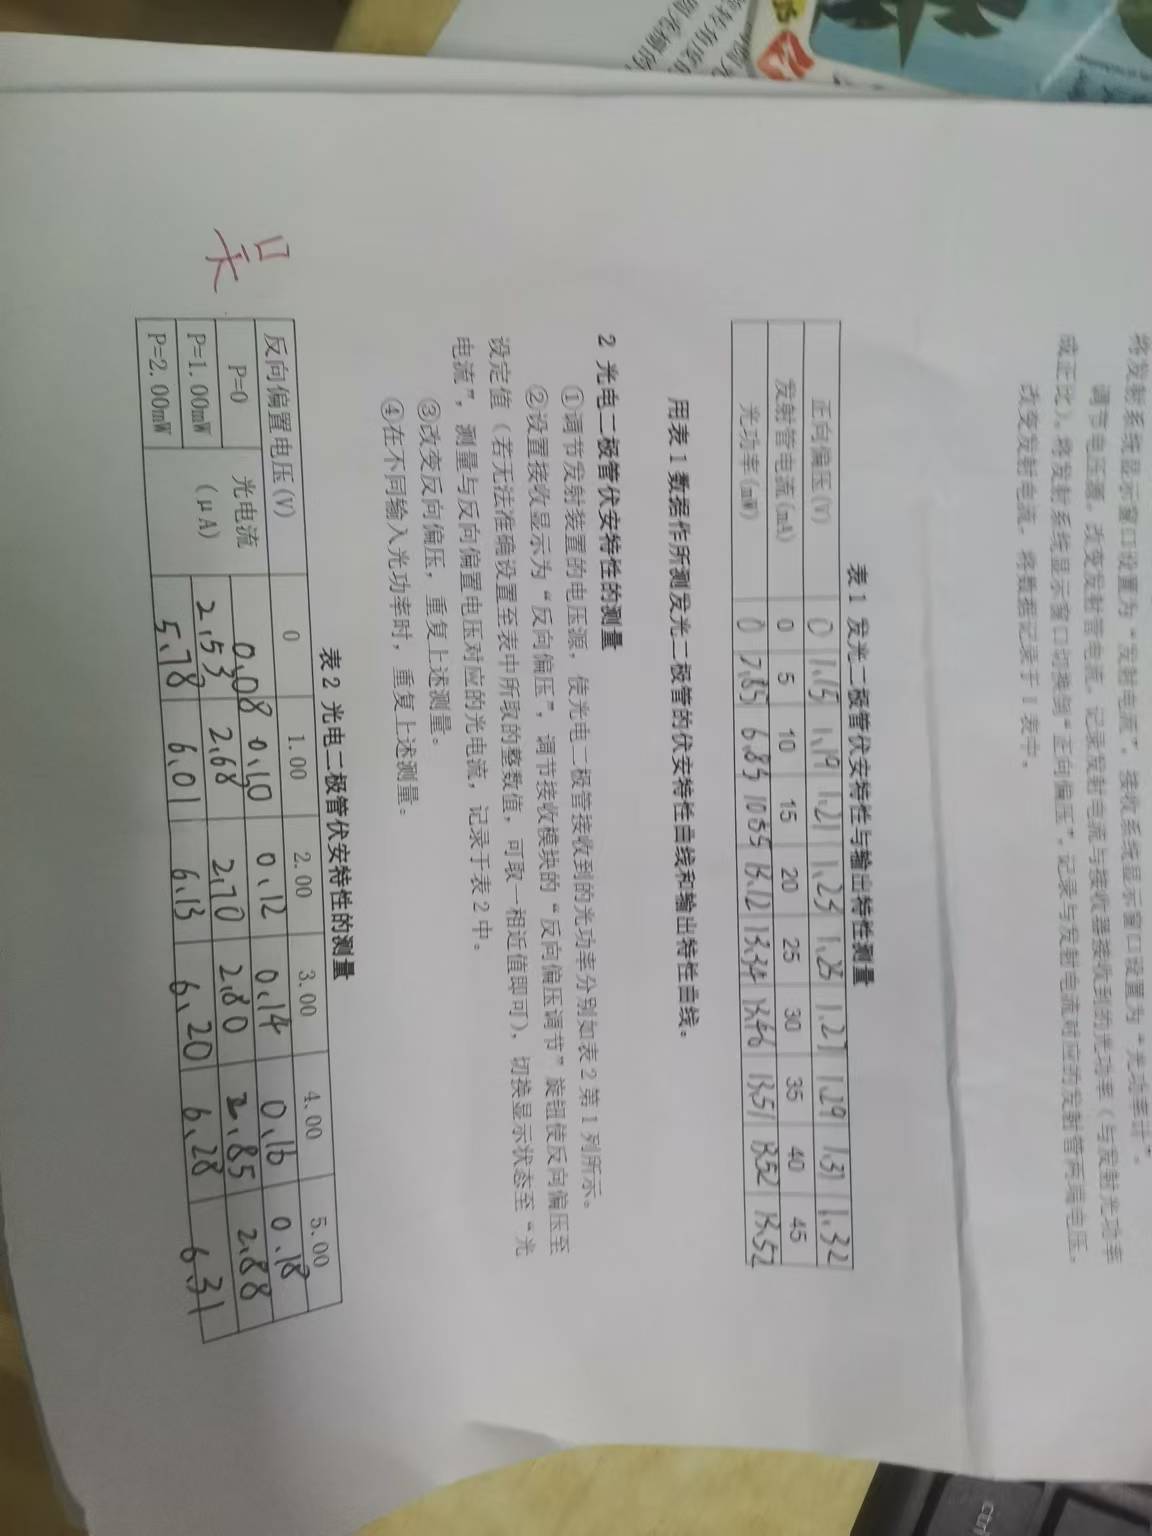 将发射系统显示窗口设置为“发射电流”，接收系统显示窗口设置为“光功率计”。
调节电压源，改变发射管电流，记录发射电流与接收器接收到的光功率（与发射光功率
成正比）。将发射系统显示窗口切换到“正向偏压”，记录与发射电流对应的发射管两端电压。
改变发射电流，将数据记录于1表中。
表1 发光二极管伏安特性与输出特性测量
正向偏压(V) 0 1.15 1.19 1.21 1.23 1.25 1.27 1.29 1.31 1.32
发射管电流(mA) 0 5 10 15 20 25 30 35 40 45
光功率(mW) 0 6.85 13.12 13.34 13.46 13.51 13.52 13.52
用表1数据作所测发光二极管的伏安特性曲线和输出特性曲线。
2 光电二极管伏安特性的测量
①调节发射装置的电压源，使光电二极管接收到的光功率分别如表2第1列所示。
②设置接收显示为“反向偏压”，调节接收模块的“反向偏压调节”旋钮使反向偏压至
设定值（若无法准确设置至表中所取的整数值，可取一相近值即可），切换显示状态至“光
电流”，测量与反向偏置电压对应的光电流，记录于表2中。
③改变反向偏压，重复上述测量。
④在不同输入光功率时，重复上述测量。
表2 光电二极管伏安特性的测量
反向偏置电压(V) 0 1.00 2.00 3.00 4.00 5.00
P=0 光电流 0.08 0.10 0.12 0.14 0.16 0.18
P=1.00mW (μA) 2.53 2.68 2.70 2.80 2.85 2.88
P=2.00mW 5.78 6.01 6.13 6.20 6.28 6.31